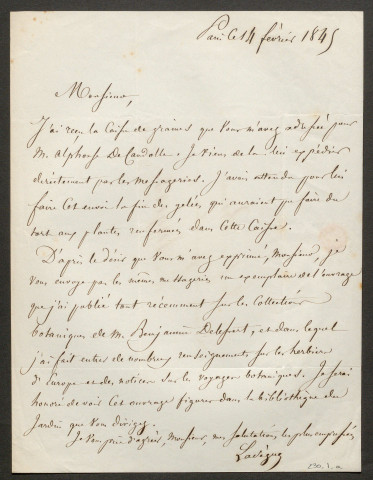 Paris ce 14 février 1845
Monsieur,
J'ai reçu la Caisse de graines que Vous m'avez adressée pour
M. Alphonse De Candolle. Je viens de la lui expédier
directement par les messageries. J'avais attendu pour lui
faire Cet envoi la fin des gelées qui auraient pu faire du
tort aux plantes renfermées dans Cette Caisse.
D'après le désir que Vous m'avez exprimé, Monsieur, je
Vous envoye par les mêmes messageries un exemplaire de l'ouvrage
que j'ai publié tout récemment sur les Collections
botaniques de M. Benjamin Delessert, et dans lequel
j'ai fait entrer de nombreux renseignements sur les herbiers
d'Europe et des notices sur les voyages botaniques. Je serai
honoré de voir Cet ouvrage figurer dans la bibliothèque du
Jardin que Vous dirigez.
Je Vous prie d'agréer, Monsieur, mes salutations les plus empressées
Lasègue